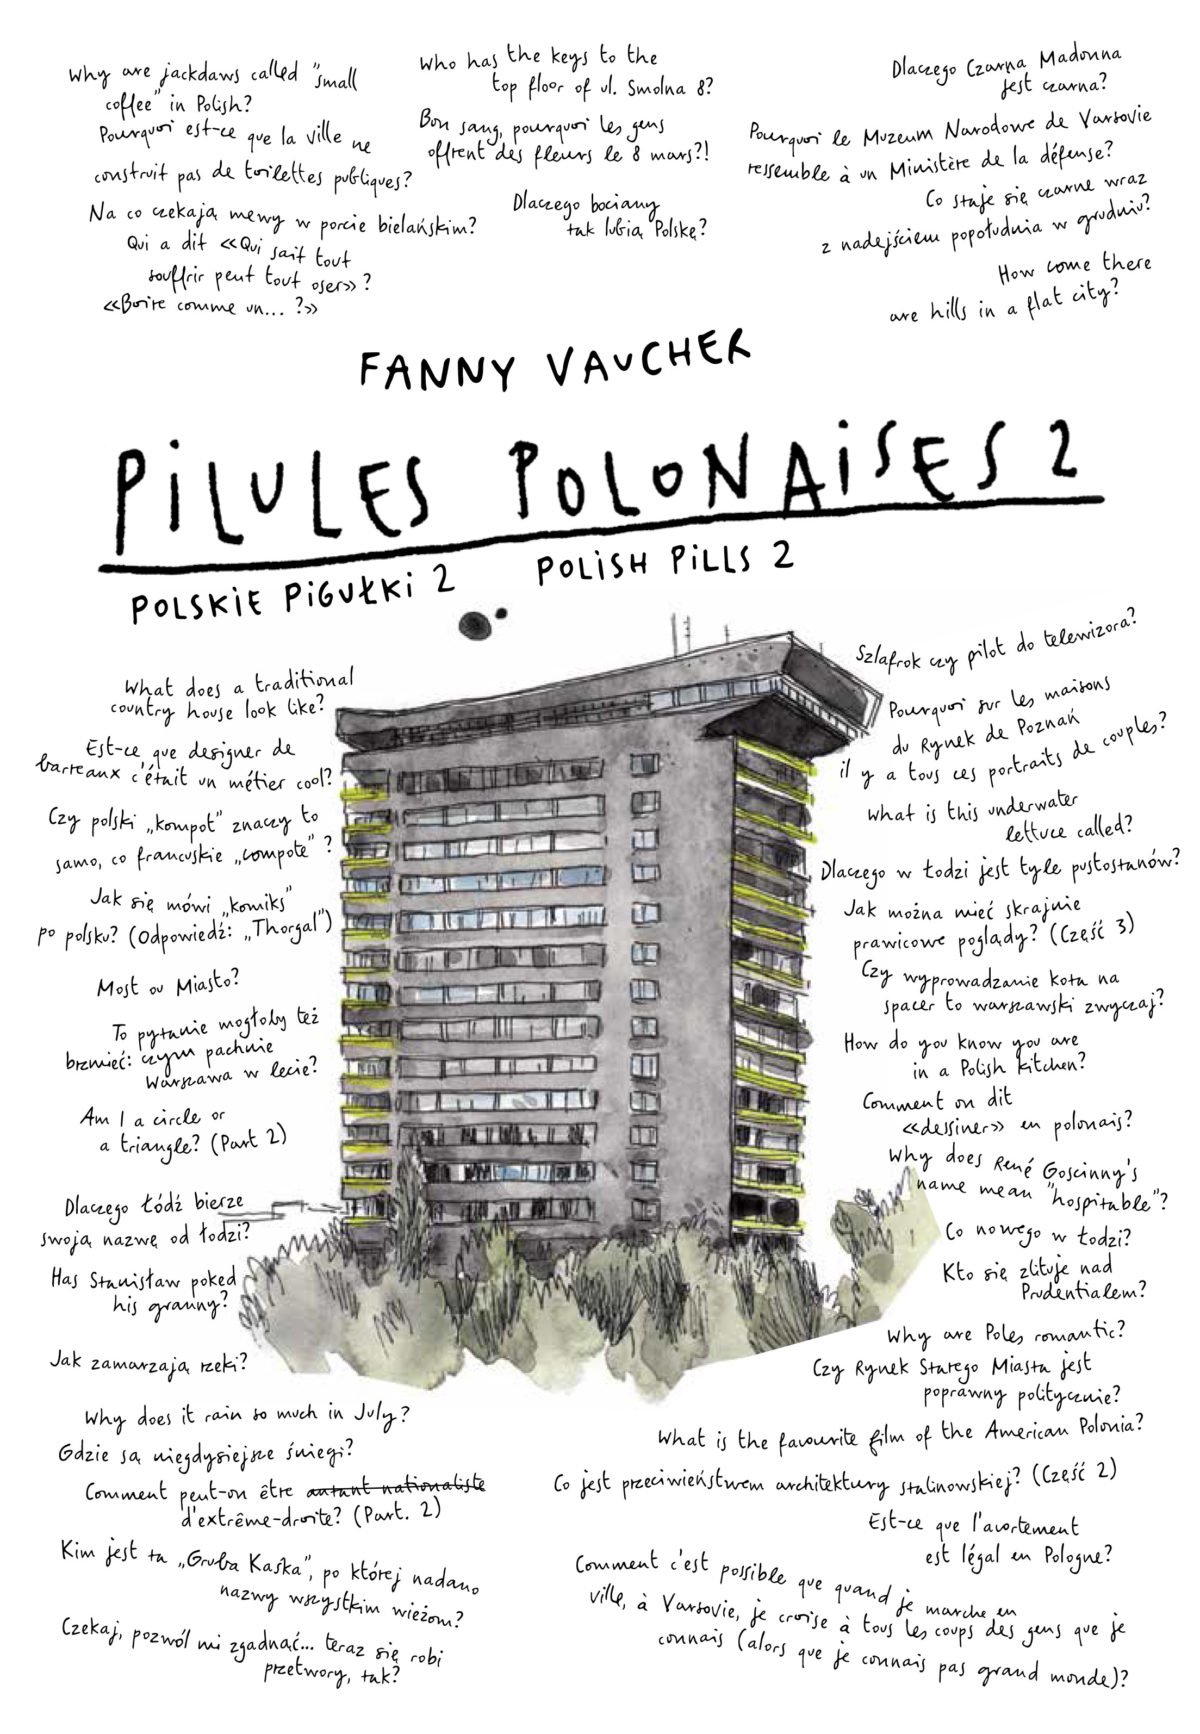 Why are jackdaws called "small
coffee" in Polish?
Pourquoi est-ce que la ville ne
construit pas de toilettes publiques?
Na co czekają mewy w porcie bielańskim?
Qui a dit «Qui sait tout
souffrir peut tout oser»?
«Boire comme un... ?»
Who has the keys to the
top floor of ul. Smolna 8?
Bon sang, pourquoi les gens
offrent des fleurs le 8 mars?!
Dlaczego bociany
tak lubią Polskę?
Dlaczego Czarna Madonna
jest czarna?
Pourquoi le Muzeum Narodowe de Varsovie
ressemble à un Ministère de la défense?
Co staje się czarne wraz
z nadejściem popołudnia w grudniu?
How come there
are hills in a flat city?
FANNY VAUCHER
PILULES POLONAISES 2
POLSKIE PIGUŁKI 2
POLISH PILLS 2
What does a traditional
country house look like?
Est-ce que designer de
barreaux c'était un métier cool?
Czy polski „kompot" znaczy to
samo, co francuskie „compote"?
Jak się mówi „komiks"
po polsku? (Odpowiedź: „Thorgal")
Most ou Miasto?
To pytanie mogłoby też
brzmieć: czym pachnie
Warszawa w lecie?
Am I a circle or
a triangle? (Part 2)
Dlaczego Łódź bierze
swoją nazwę od łodzi?
Has Stanisław poked
his granny?
Jak zamarzają rzeki?
Why does it rain so much in July?
Gdzie są niegdysiejsze śniegi?
Comment peut-on être autant nationaliste
d'extrême-droite? (Part. 2)
Kim jest ta „Gruba Kaśka", po której nadano
nazwy wszystkim wieżom?
Czekaj, pozwól mi zgadnąć... teraz się robi
przetwory, tak?
Szlafrok czy pilot do telewizora?
Pourquoi sur les maisons
du Rynek de Poznań
il y a tous ces portraits de couples?
What is this underwater
lettuce called?
Dlaczego w Łodzi jest tyle pustostanów?
Jak można mieć skrajnie
prawicowe poglądy? (Część 3)
Czy wyprowadzanie kota na
spacer to warszawski zwyczaj?
How do you know you are
in a Polish kitchen?
Comment on dit
«dessiner» en polonais?
Why does René Goscinny's
name mean "hospitable"?
Co nowego w Łodzi?
Kto się zlituje nad
Prudentialem?
Why are Poles romantic?
Czy Rynek Starego Miasta jest
poprawny politycznie?
What is the favourite film of the American Polonia?
Co jest przeciwieństwem architektury stalinowskiej? (Część 2)
Est-ce que l'avortement
est légal en Pologne?
Comment c'est possible que quand je marche en
ville, à Varsovie, je croise à tous les coups des gens que je
connais (alors que je connais pas grand monde)?